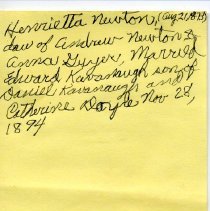 Henrietta Newton, (Aug 21, 1873)
daw of Andrew Newton &
Anna Gyger, Married
Edward Kavanaugh son of
Daniel Kavanaugh and
Catherine Doyle Nov 28,
1894